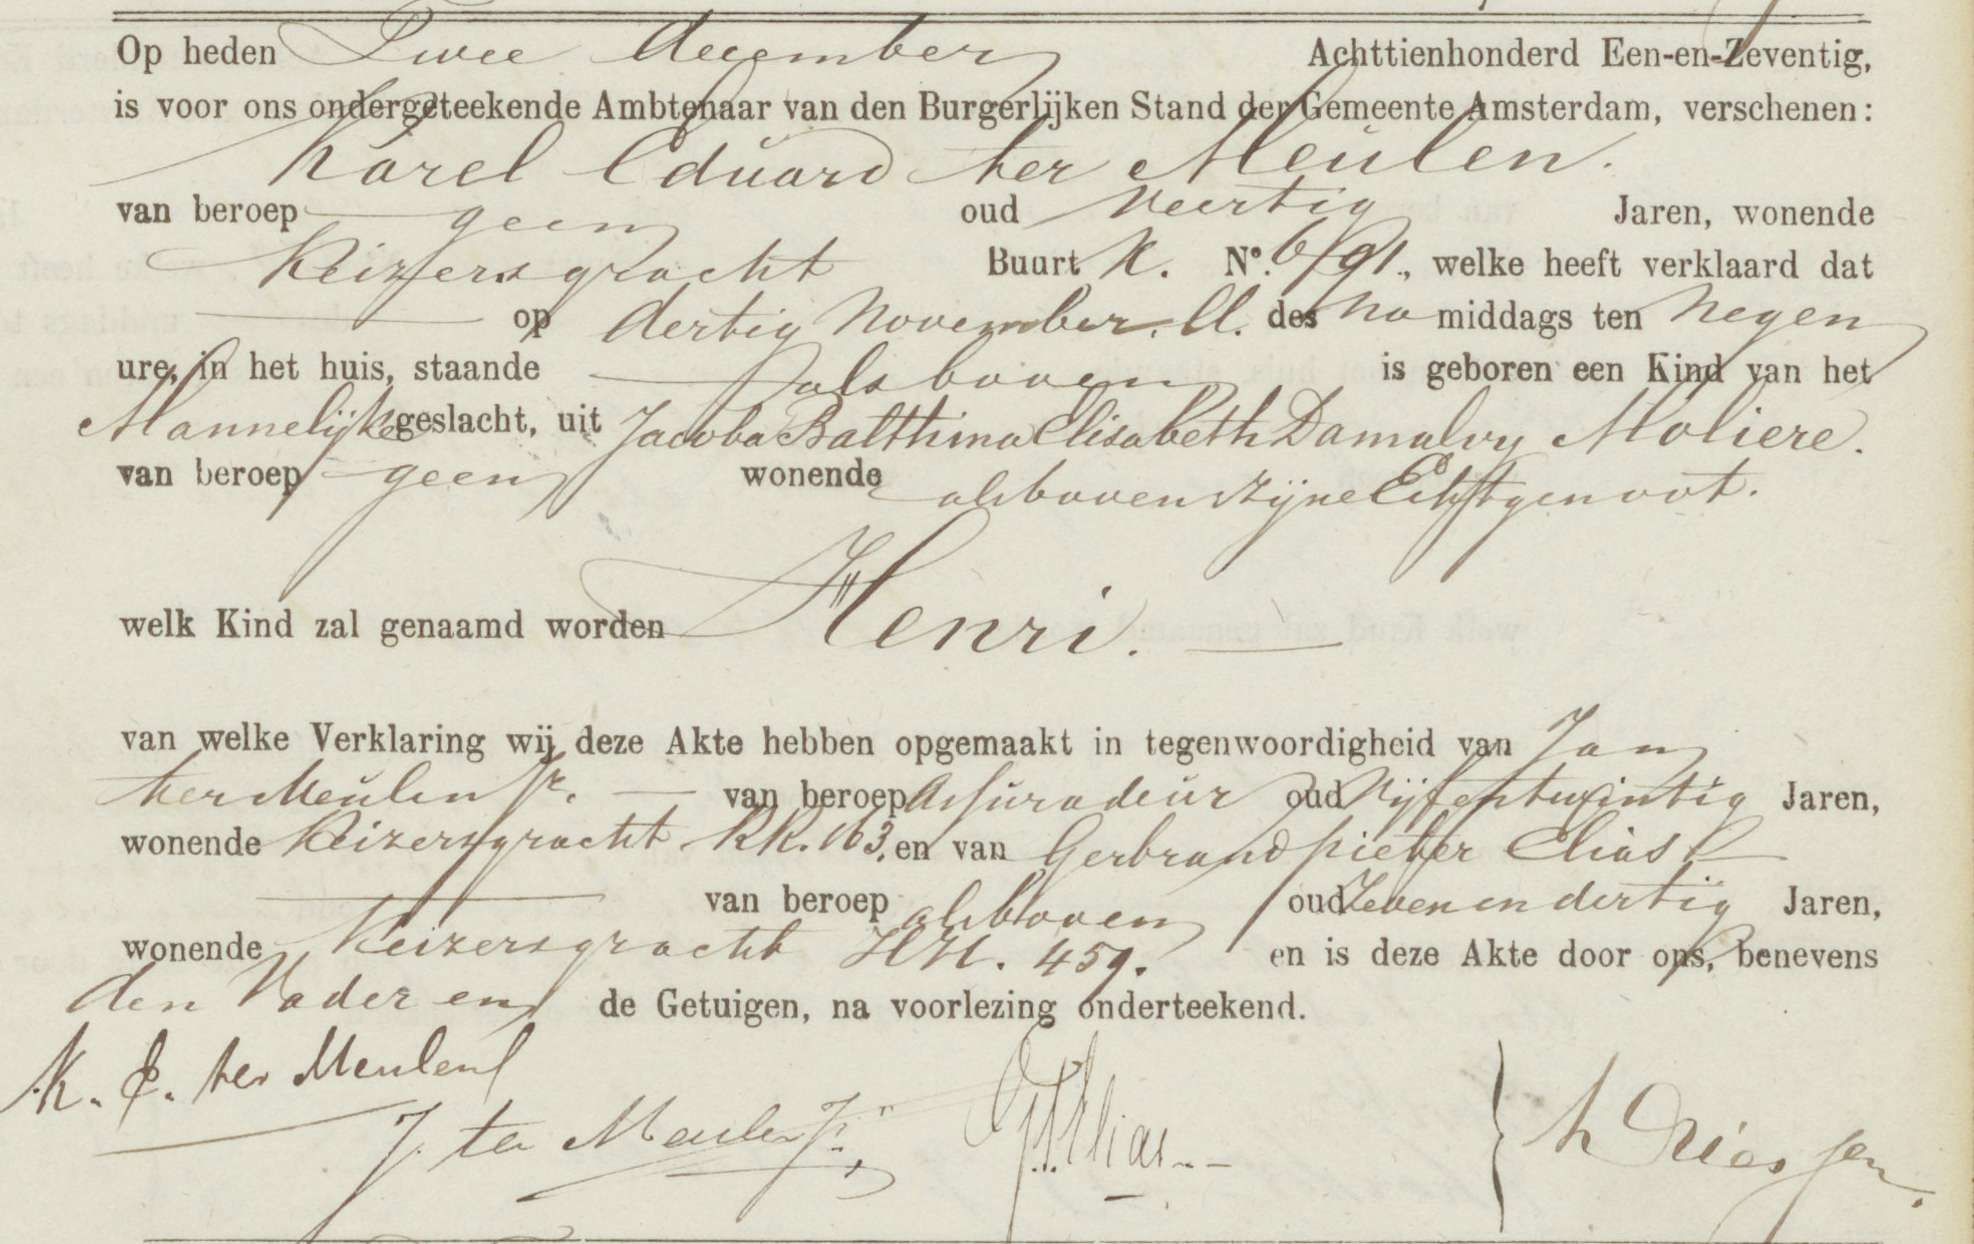 Op heden Twee december Achttienhonderd Een-en-Zeventig,
is voor ons ondergeteekende Ambtenaar van den Burgerlijken Stand der Gemeente Amsterdam, verschenen:
Karel Eduard ter Meulen.
van beroep geen oud Veertig Jaren, wonende
Keizersgracht Buurt K. N°. 6/91., welke heeft verklaard dat
op dertig November. ll. des na middags ten Negen
ure, in het huis, staande als boven is geboren een Kind van het
Mannelijke geslacht, uit Jacoba Balthina Elisabeth Damalvy Moliere.
van beroep geen wonende alsboven zijne Echtgenoot.
welk Kind zal genaamd worden Henri.
van welke Verklaring wij deze Akte hebben opgemaakt in tegenwoordigheid van Jan
ter Meulen Jr. van beroep Assuradeur oud Vijfentwintig Jaren,
wonende Keizersgracht KK. 163. en van Gerbrand pieter Elias
van beroep alsboven oud Zevenendertig Jaren,
wonende Keizersgracht HH. 459. en is deze Akte door ons, benevens
den Vader en de Getuigen, na voorlezing onderteekend.
K. E. ter Meulen
J. ter Meulen Jr. GPElias